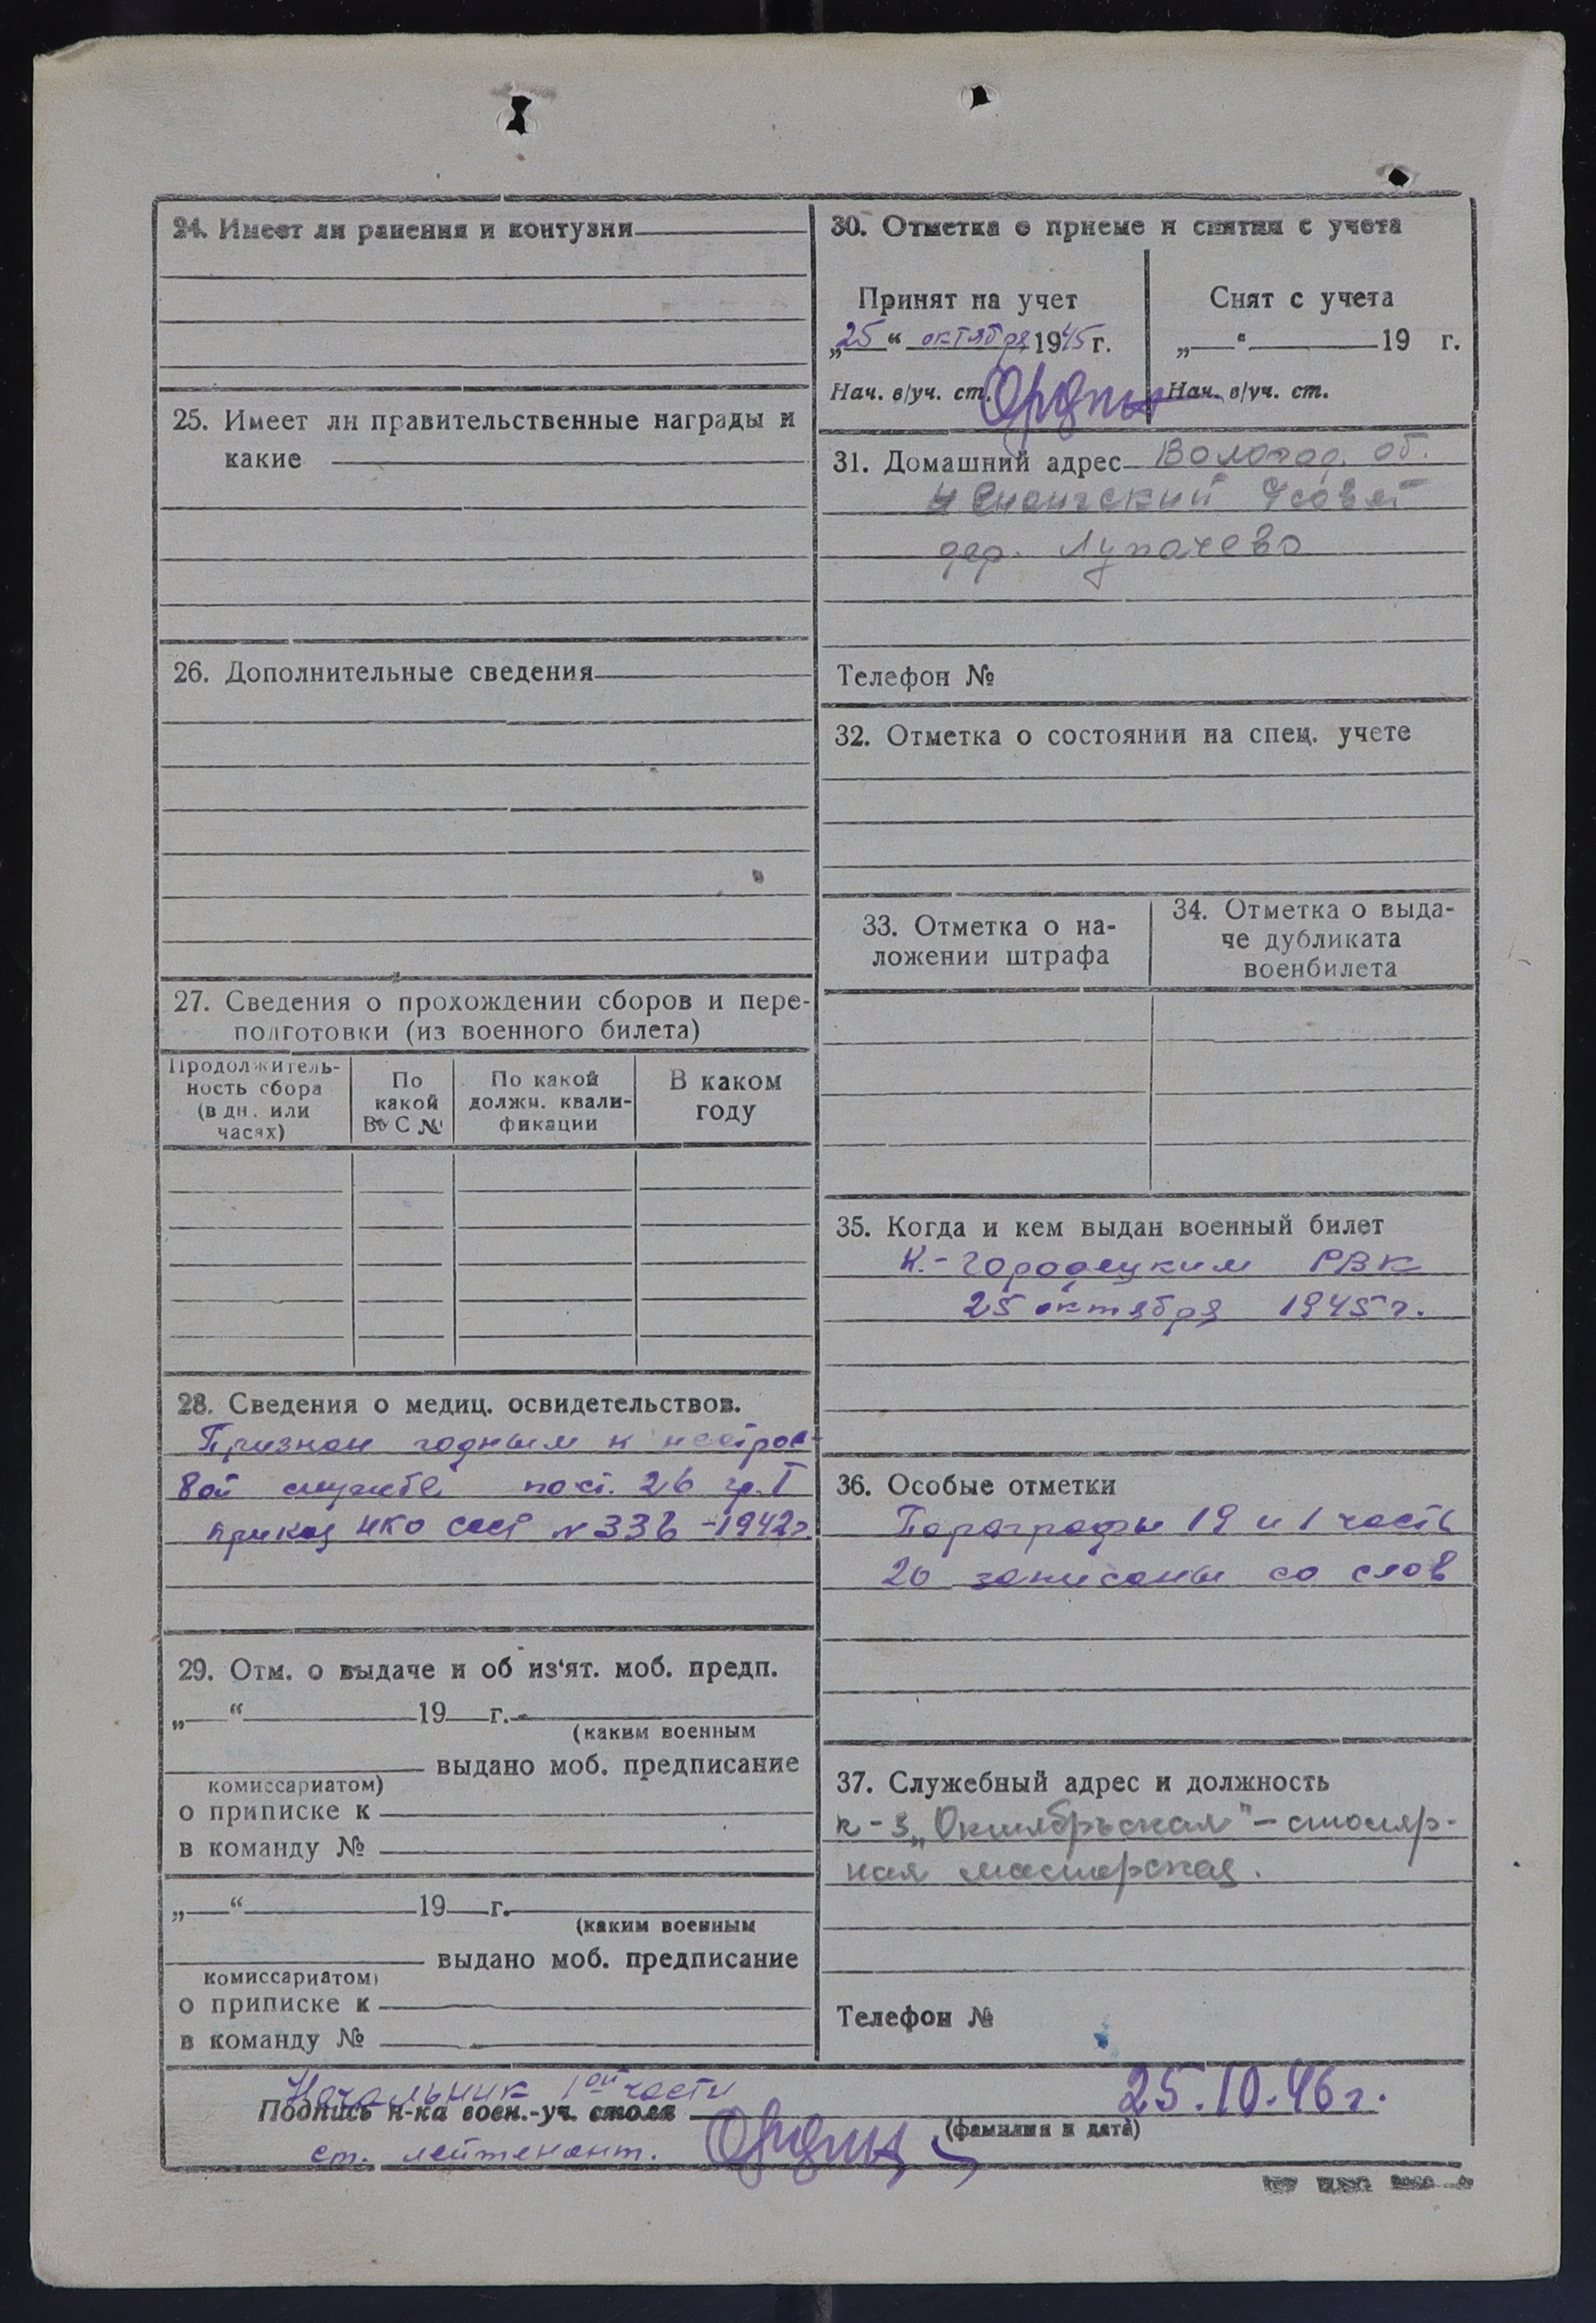 24. Имеет ли ранения и контузии
25. Имеет ли правительственные награды и
какие
26. Дополнительные сведения
27. Сведения о прохождении сборов и пере-
подготовки (из военного билета)
Продолжитель-
ность сбора
(в дн. или
часах)
По
какой
ВУС №
По какой
должн. квали-
фикации
В каком
году
28. Сведения о медиц. освидетельствов.
Признан годным к нестрое-
вой службе пост. 26 гр. I
приказ НКО СССР N 336 - 1942 г.
29. Отм. о выдаче и об из‘ят. моб. предп.
„ “ 19 г.
(каким военным
выдано моб. предписание
комиссариатом)
о приписке к
в команду №
„ “ 19 г.
(каким военным
выдано моб. предписание
комиссариатом)
о приписке к
в команду №
30. Отметка о приеме и снятии с учета
Принят на учет
„25“ октября 1945 г.
Нач. в/уч. ст.
Снят с учета
„ “ 19 г.
Нач. в/уч. ст.
31. Домашний адрес Вологод. об.
дер. Лупачево
Телефон №
32. Отметка о состоянии на спец. учете
33. Отметка о на-
ложении штрафа
34. Отметка о выда-
че дубликата
военбилета
35. Когда и кем выдан военный билет
К.-Городецким РВК
25 октября 1945 г.
36. Особые отметки
Параграфы 19 и 1 часть
20 записаны со слов
37. Служебный адрес и должность
к-з „Октябрьская" - столяр-
ная мастерская.
Телефон №
Начальник 1ой части
Подпись н-ка воен.-уч. стола
25.10.46 г.
(фамилия и дата)
ст. лейтенант.